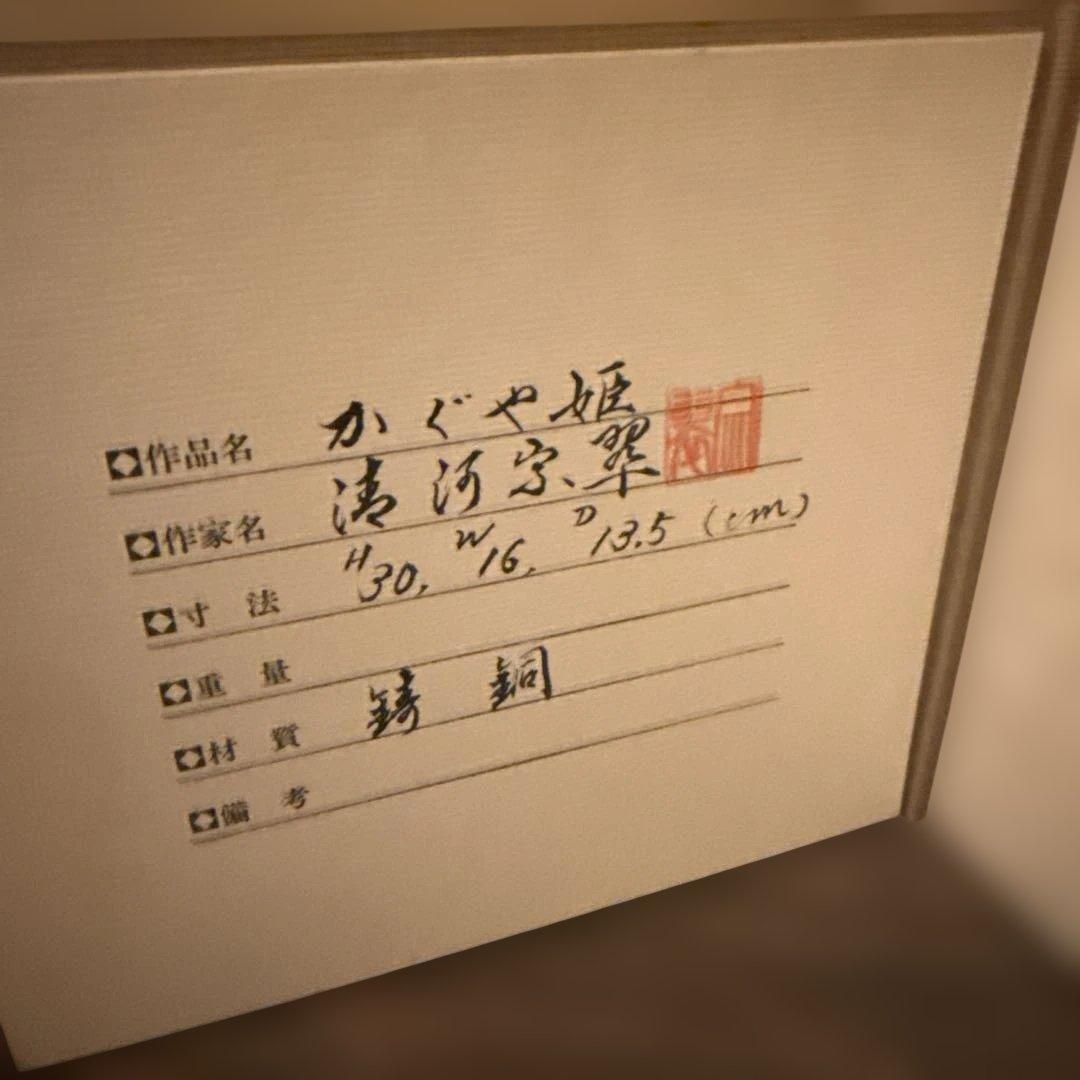 作品名 かぐや姫
作家名 清河宗翠
寸法 H30, W16, D13.5 (cm)
重量
材質 鋳銅
備考